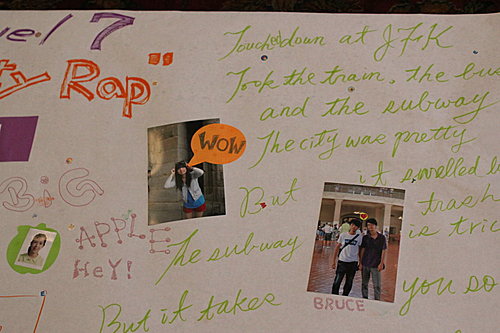 evel 7
ty Rap"
Touchdown at JFK
Took the train, the bus
and the subway
The city was pretty
But it smelled
trash
The subway is
But it takes you so
WOW
BIG
APPLE
HeY!
BRUCE